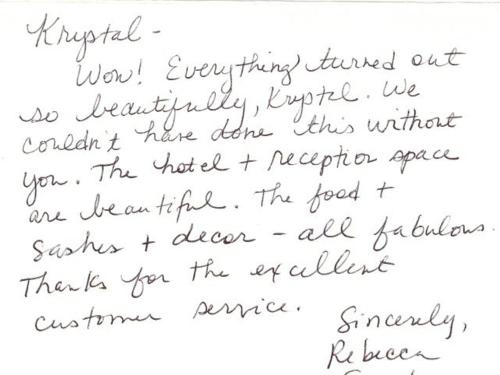 Krystal -
Wow! Everything turned out
so beautifully, Krystal. We
couldn't have done this without
you. The hotel + reception space
are beautiful. The food +
Sashes + decor - all fabulous.
Thanks for the excellent
customer service.
Sincerely,
Rebecca